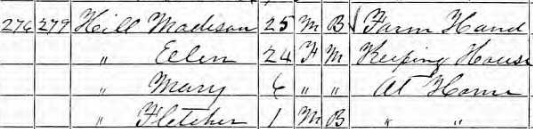 276 279 Hill Madison 25 M B / Farm Hand
" Ellen 24 F M Keeping House
" Mary 6 " " At Home
" Fletcher 1 M B " "